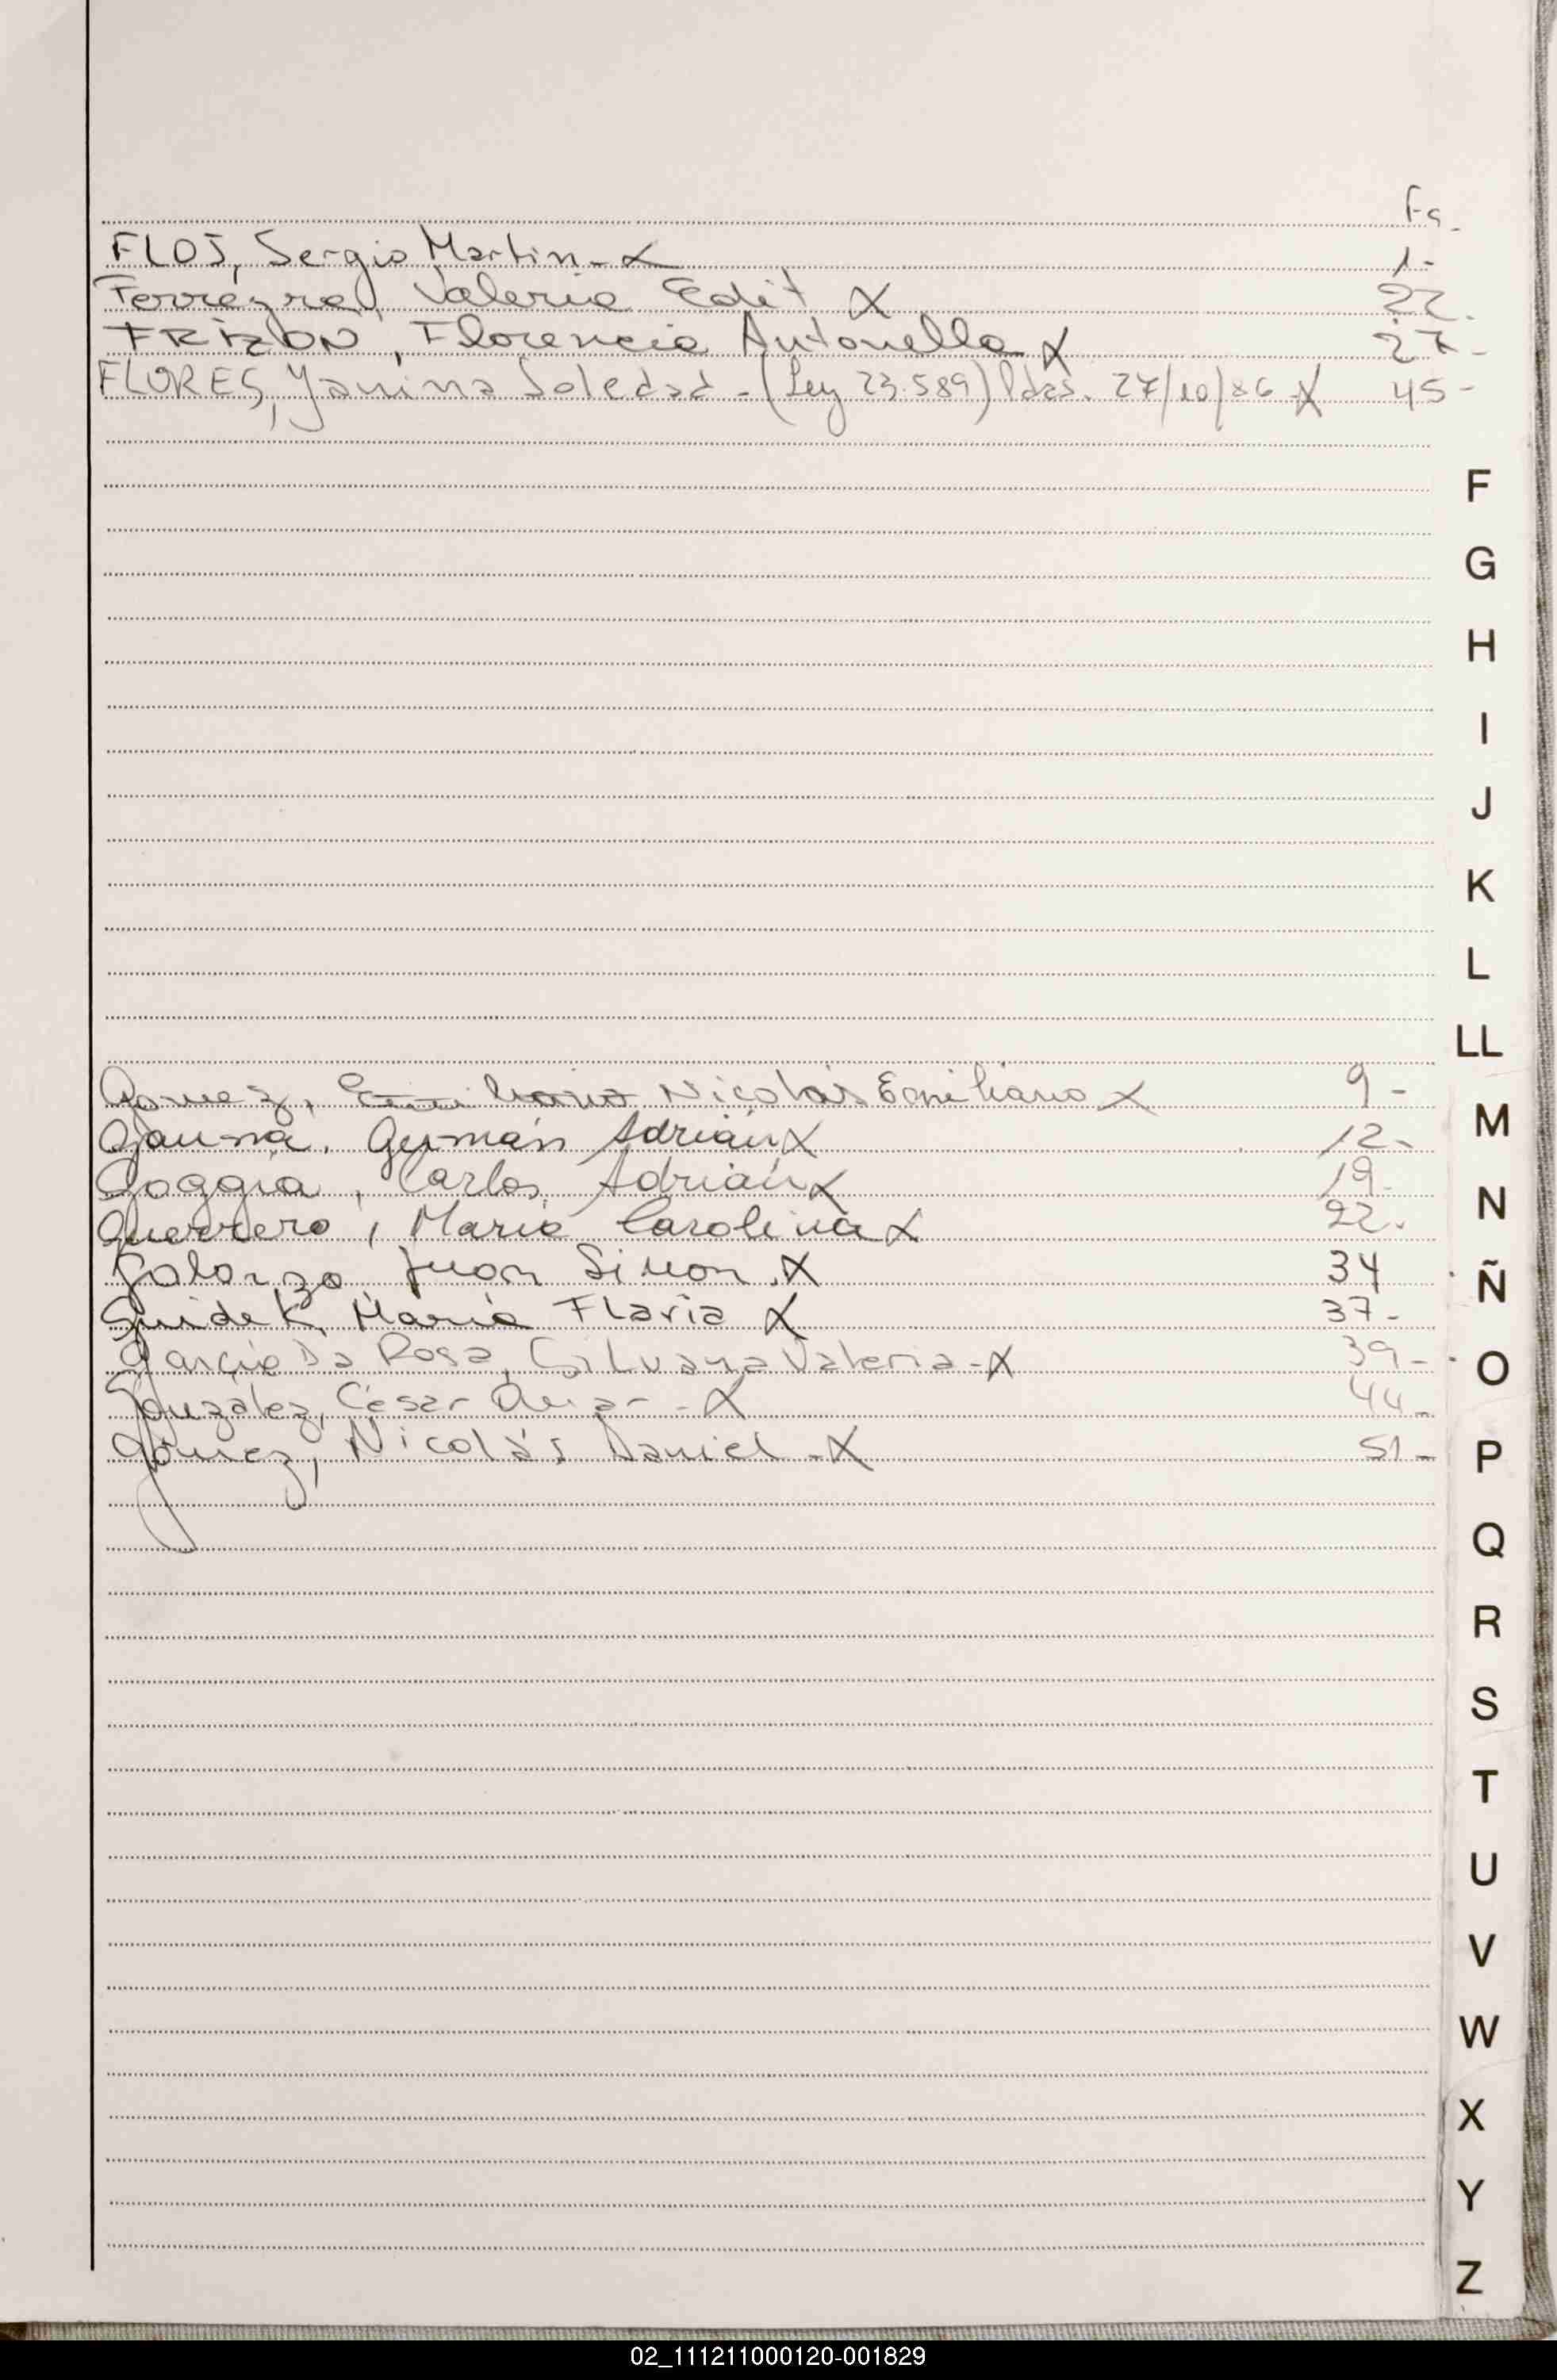 Fs.
FLOS, Sergio Martin - X 1-
Ferreyra, Valeria Edit X 22.
FRIZON, Florencia Antonella X 27-
FLORES, Yanina Soledad - (Ley 23.589) 27/10/86 X 45-
F
G
H
I
J
K
L
LL
Gomez, Emiliano Nicolás Emiliano X 9-
Gauna, Germán Adrián X 12-
Goggia, Carlos Adrián X 19-
Guerrero, María Carolina X 22.
Galarza Juan Simon X 34
Guidek, María Flavia X 37-
Garcia Da Rosa, Silvana Valeria - X 39-
González, César Omar - X 44-
Gómez, Nicolás Daniel - X 51-
M
N
Ñ
O
P
Q
R
S
T
U
V
W
X
Y
Z
02_111211000120-001829